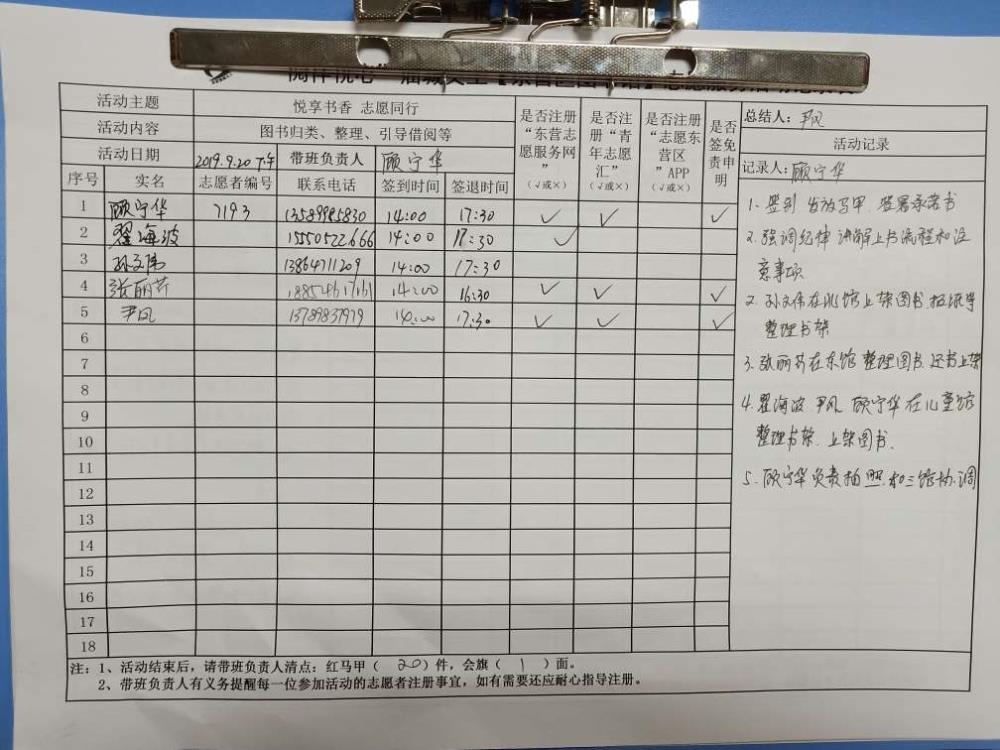 活动主题 悦享书香 志愿同行
活动内容 图书归类、整理、引导借阅等
活动日期 2019.9.20 下午 带班负责人 顾宁华
序号 实名 志愿者编号 联系电话 签到时间 签退时间 是否注册“东营志愿服务网”（√或×） 是否注册“青年志愿汇”（√或×） 是否注册“志愿东营区”APP（√或×） 是否签免责申明
1 顾宁华 7193 13589985830 14:00 17:30 √ √ √
2 翟海波 15550522666 14:00 17:30 √
3 孙文伟 13864711209 14:00 17:30
4 张丽芹 14:00 16:30 √ √ √
5 尹风 13789837979 14:00 17:30 √ √ √
6
7
8
9
10
11
12
13
14
15
16
17
18
总结人：尹风
活动记录
记录人：顾宁华
1、签到 发放马甲 签署承诺书
2、强调纪律 讲解上书流程和注
意事项
2、孙文伟在北馆上架图书
整理书架
3、张丽芹在东馆整理图书 还书上架
4、翟海波 尹风 顾宁华在儿童馆
整理书架、上架图书.
5、顾宁华负责拍照 和三馆协调
注：1、活动结束后，请带班负责人清点：红马甲（ 20 ）件，会旗（ 1 ）面。
2、带班负责人有义务提醒每一位参加活动的志愿者注册事宜，如有需要还应耐心指导注册。